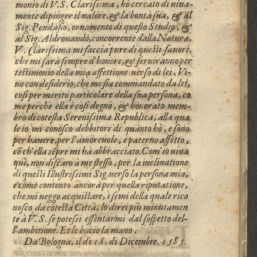 monio di V. S. Clarissima, hò cercato di viua-
mente dipinger il valore, & la bontà sua, & al
Sig. Pendasio, ornamento di questo Studio, &
al Sig. Aldrouando, concorrente dalla Natura.
V. Clarissima mi faccia pure di questi fauori,
che mi sarà sempre d'honore, & seruiranno per
testimonio della mia affettione verso di lei. Vi-
uo con desiderio, che mi sia commandato da lei,
cosi per merito particolare della sua persona, co
me perche ella è cosi degno, & honorato mem-
bro di cotesta Serenissima Republica, alla qua
le io mi conosco debbitore di quanto hò, e sono,
per hauere, per l'amoreuole, e paterno affetto,
cō ch'ella sēpre m'hà abbracciato. Com'io viuo
quì, non discaro à me stesso, per la inclinatione
di questi Illustrissimi Sig. verso la persona mia,
e come contento ancora per quella riputatione,
che mi veggo acquistare, i semi della quale rico
nosco da cotesta Città. Io direi più minutamen
te à V. S. se potessi essentarmi dal sospetto del-
l'ambitione. Et le bacio la mano.
Da Bologna, il dì 18. di Decembre. 1585.